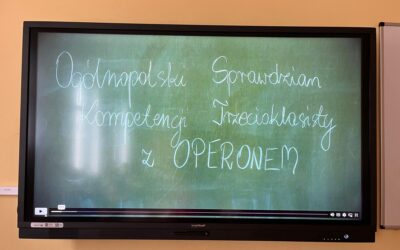 Ogólnopolski Sprawdzian
Kompetencji Trzecioklasisty
z OPERONEM